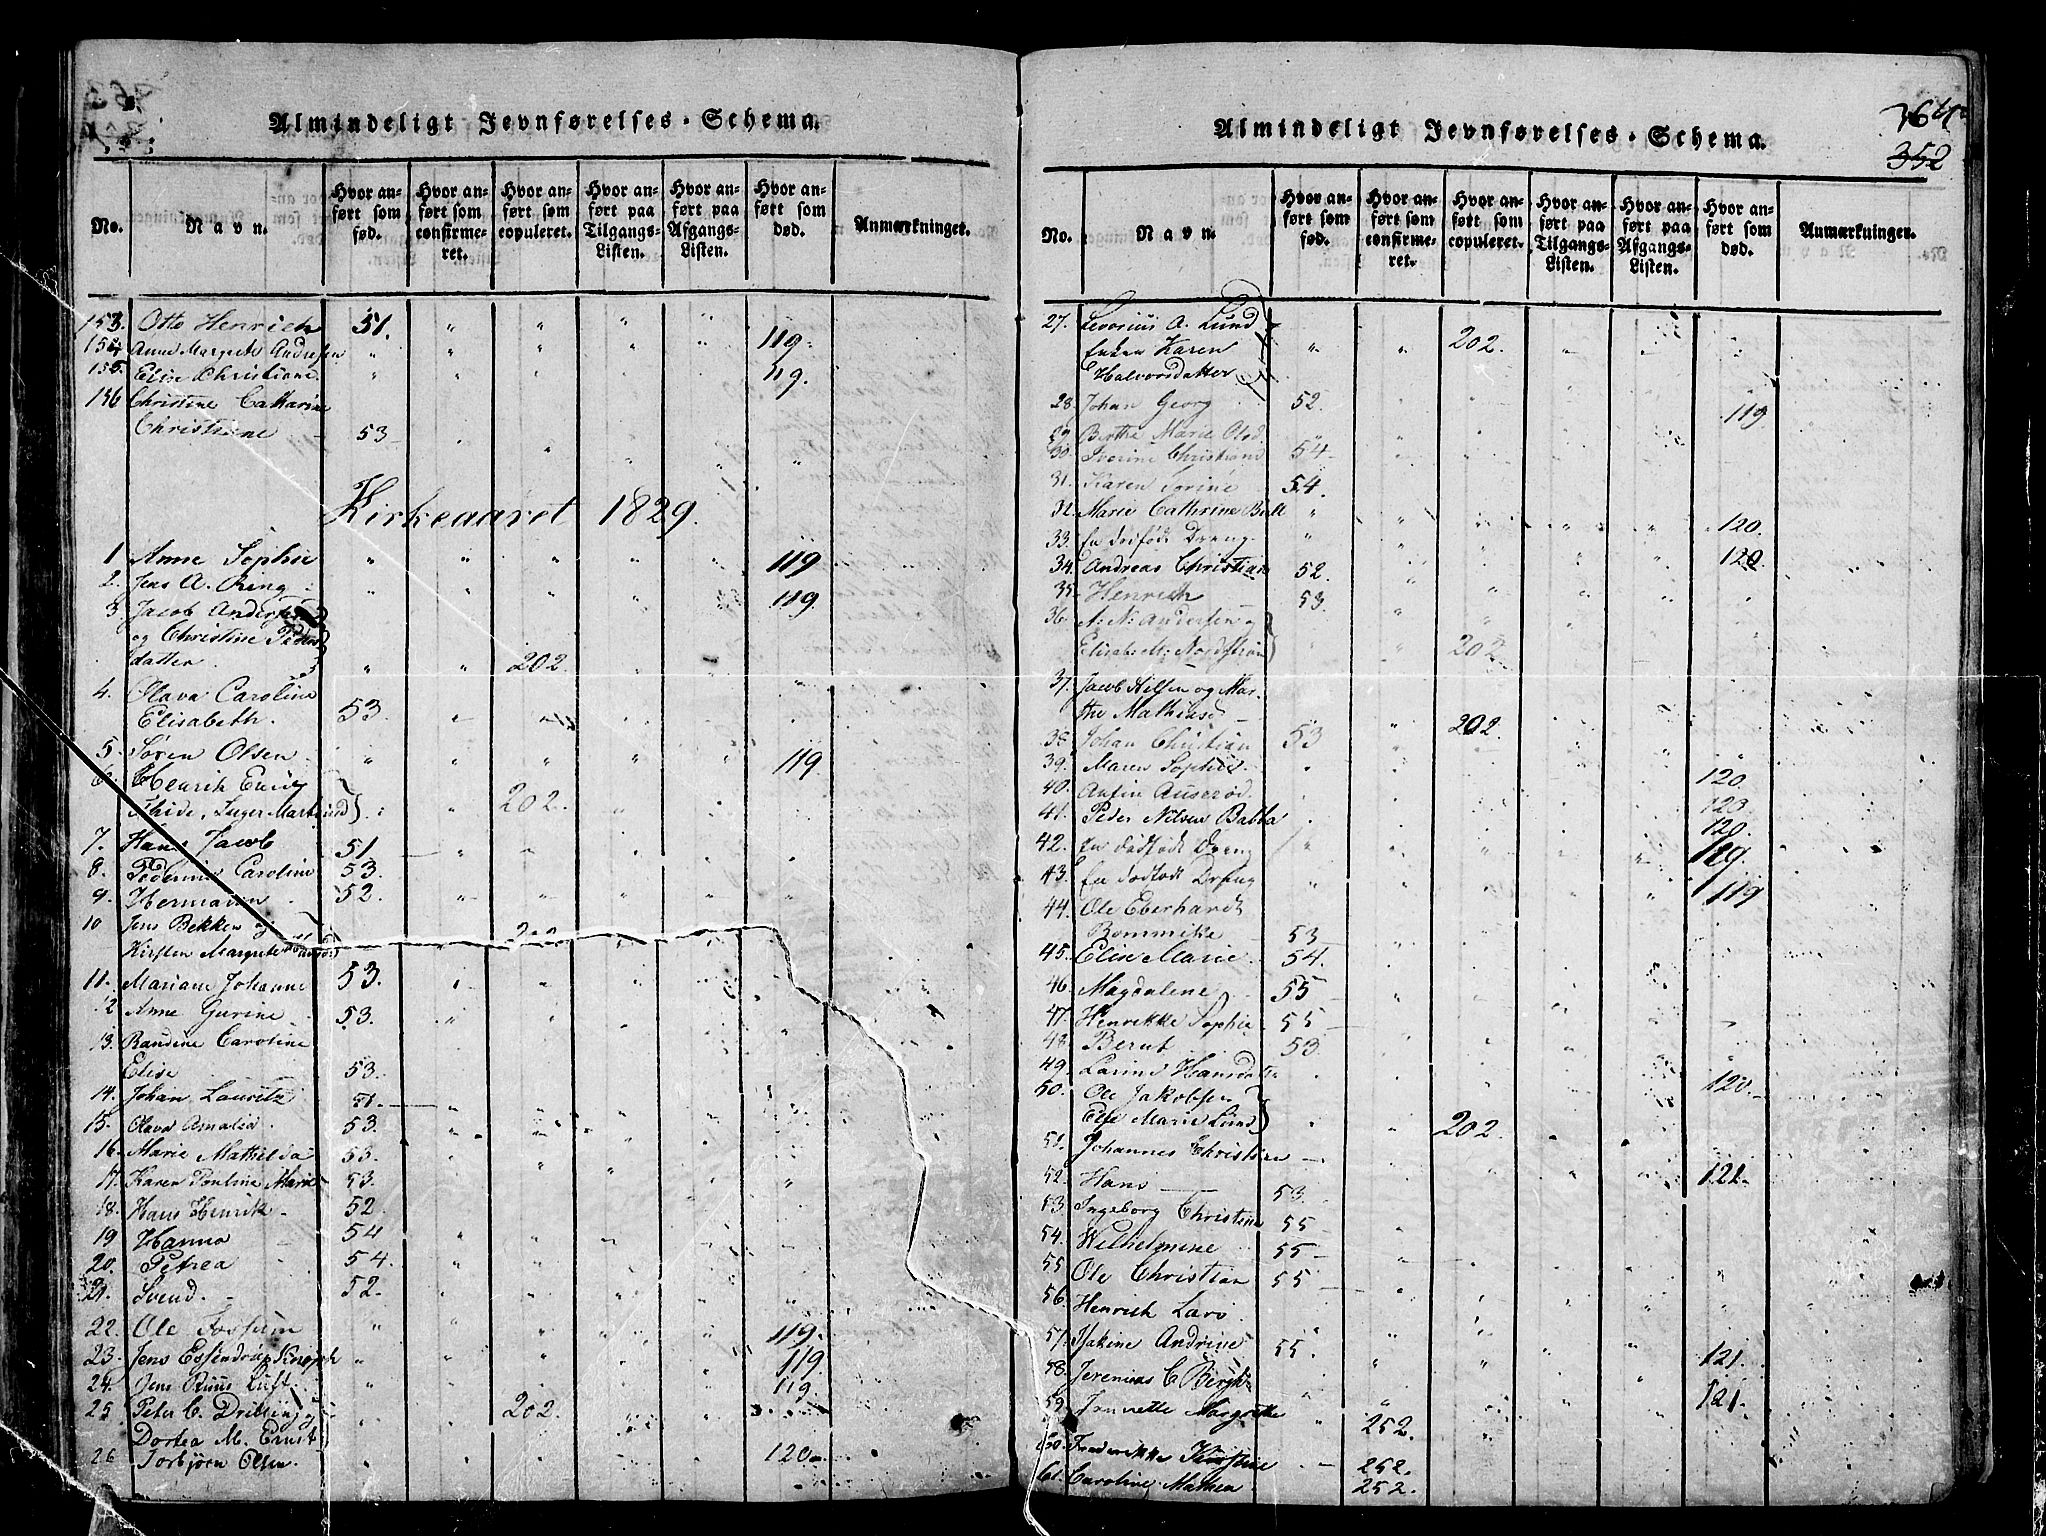 Almindeligt Jevnførelses-Schema.
No. Navn. Hvor anført som fød. Hvor anført som confirmeret. Hvor anført som copuleret. Hvor anført paa Tilgangs-Listen. Hvor anført paa Afgangs-Listen. Hvor anført som død. Anmærkninger.
153. Otto Henrich 51. " " "
154 Anne Margrete Andresen " " " 119.
155. Elise Christiane. " " " 119.
156 Christine Catharine
Christiane 53
Kirkeaaret 1829.
1 Anne Sophie " " " 119
2. Jens A. Ring " " " 119
3. Jacob Andersen
og Christine Peders
datter. " " 202.
4. Olava Caroline
Elisabeth. 53.
5. Søren Olsen " " " 119.
6. Henrik Ernst
Thide, Inger Martine 202.
7. Hans Jacob 51
8. Pedernine Caroline 53.
9. Hermann 52.
10 Jens Bekken og
Kirsten Margrete 202
11. Mariane Johanne 53.
12 Anne Gurine 53.
13. Randine Caroline
Elise 53.
14. Johan Lauritz 51.
15. Olava Amalia 53.
16. Marie Mathilda 53.
17. Karen Pouline Marie 53.
18. Hans Henrik 52.
19 Hanna 54
20. Petrea 54.
21. Svend. 52.
22. Ole Fossum 119.
23. Jens Essendrop Knoph 119
24. Jens Ruus Luft. 119.
25 Peter C. Drilsen og 202.
Dortea M. Ernst
26 Torbjørn Olsen. 120
Almindeligt Jevnførelses-Schema.
364
352
No. Navn. Hvor anført som fød. Hvor anført som confirmeret. Hvor anført som copuleret. Hvor anført paa Tilgangs-Listen. Hvor anført paa Afgangs-Listen. Hvor anført som død. Anmærkninger.
27. A. Lund
Enken Karen 202.
Halvorsdatter
28. Johan Georg 52.
29. Berthe Marie Olsd. 119
30. Iverine Christiane 54
31. Karen Sorine 54.
32. Marie Cathrine Bull 120.
33. En dødfødt Dreng. 120.
34. Andreas Christian 52.
35. Henrich 53.
36. N: N: Andersen og
Elisab: M: Nordstrøm 202.
37. Jacob Nilsen og Mar-
the Mathiasd 202.
38. Johan Christian 53
39. Maren Sophie. 120.
40. Anfin Auserød. 120.
41. Peder Nilsen Balba 120.
42. En dødfødt Dreng 119.
43. En dødfødt Dreng 119
44. Ole Eberhardt
Bommike 53
45. Elise Marie 54.
46 Magdalene 55
47. Henrikke Sophie 55
48. Berut 53.
49. Larine Hansdatter 120.
50. Ole Jakobsen
Else Marie Lund 202.
51. Johannes Christian
52. Hans 53. 121.
53. Ingeborg Christine 55
54. Wilhelmine 55
55 Ole Christian 55
56. Henrich Lars
57. Hakine Andrine 55. 121.
58. Jeremias C Bergh 121.
59. Jannette Margrethe 252.
60. Frederikke Kirstine 252.
61. Caroline Mathea 252.